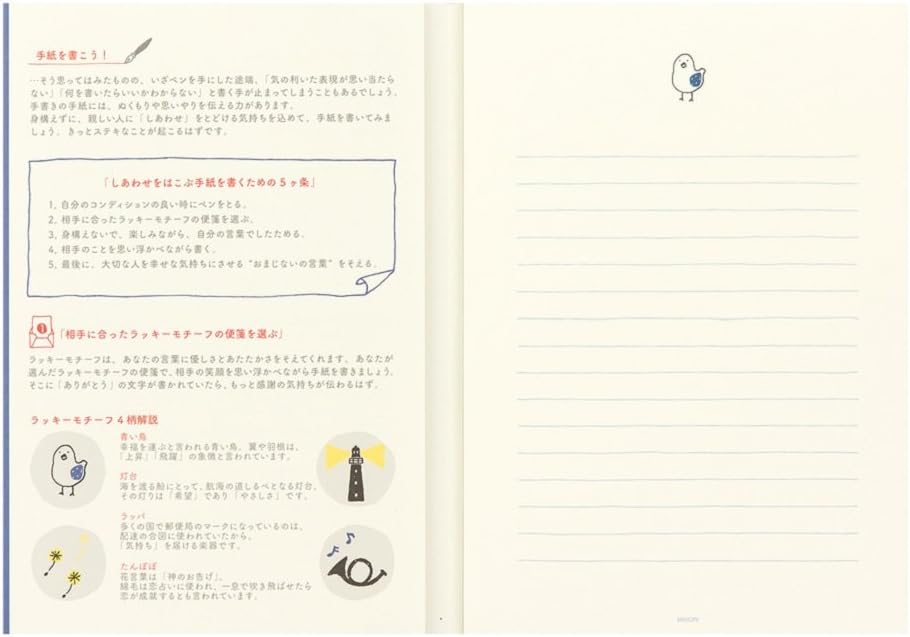 手紙を書こう！
…そう思ってはみたものの、いざペンを手にした途端、「気の利いた表現が思い当たら
ない」「何を書いたらいいかわからない」と書く手が止まってしまうこともあるでしょう。
手書きの手紙には、ぬくもりや思いやりを伝える力があります。
身構えずに、親しい人に「しあわせ」をとどける気持ちを込めて、手紙を書いてみま
しょう。きっとステキなことが起こるはずです。
「しあわせをはこぶ手紙を書くための5ヶ条」
1, 自分のコンディションの良い時にペンをとる。
2, 相手に合ったラッキーモチーフの便箋を選ぶ。
3, 身構えないで、楽しみながら、自分の言葉でしたためる。
4, 相手のことを思い浮かべながら書く。
5, 最後に、大切な人を幸せな気持ちにさせる“おまじないの言葉”をそえる。
1「相手に合ったラッキーモチーフの便箋を選ぶ」
ラッキーモチーフは、あなたの言葉に優しさとあたたかさをそえてくれます。あなたが
選んだラッキーモチーフの便箋で、相手の笑顔を思い浮かべながら手紙を書きましょう。
そこに「ありがとう」の文字が書かれていたら、もっと感謝の気持ちが伝わるはず。
ラッキーモチーフ4柄解説
青い鳥
幸福を運ぶと言われる青い鳥。翼や羽根は、
「上昇」「飛躍」の象徴と言われています。
灯台
海を渡る船にとって、航海の道しるべとなる灯台。
その灯りは「希望」であり「やさしさ」です。
ラッパ
多くの国で郵便局のマークになっているのは、
配達の合図に使われていたから。
「気持ち」を届ける楽器です。
たんぽぽ
花言葉は「神のお告げ」。
綿毛は恋占いに使われ、一息で吹き飛ばせたら
恋が成就するとも言われています。
MIDORI